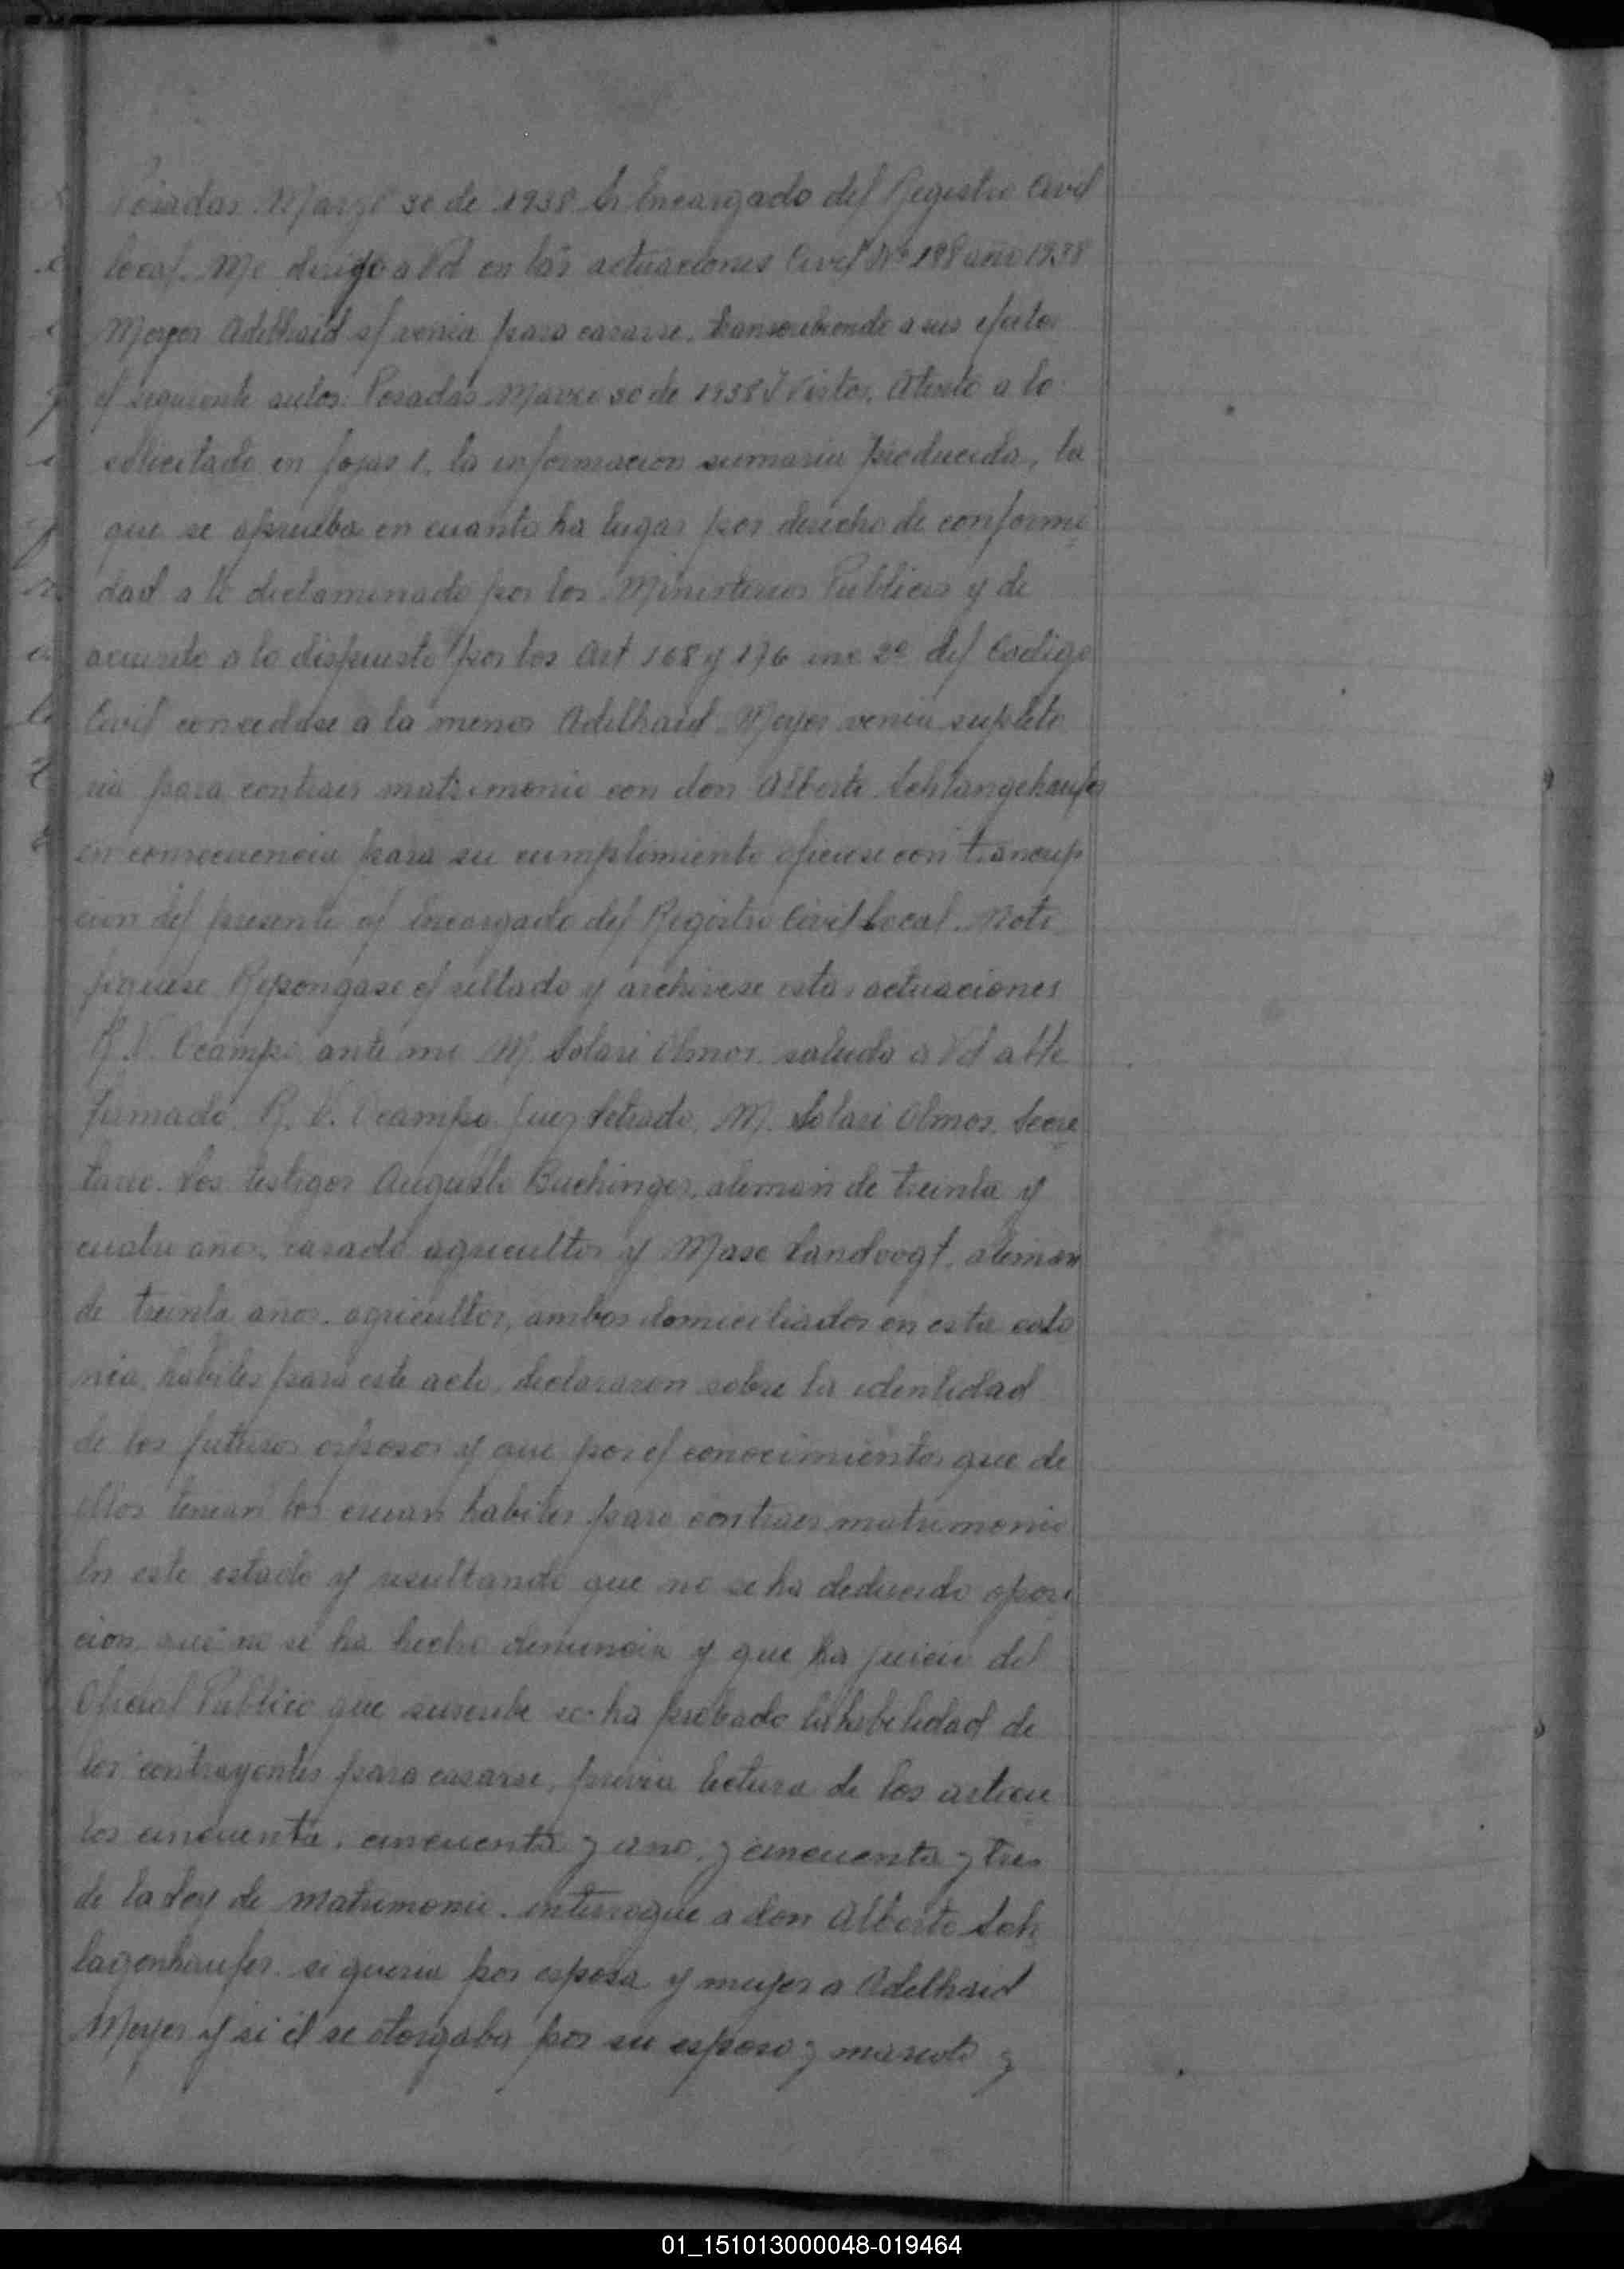 Posadas Marzo 30 de 1938 Sr Encargado del Registro Civil
local. Me dirijo a Vd en las actuaciones Civil Nº 188 año 1938
Meyer Adelhaid s/ venia para casarse, transcribiendo a sus efectos
el siguiente autos: Posadas Marzo 30 de 1938 Y Vistos, Atento a lo
solicitado en fojas 1, la informacion sumaria producida, la
que se aprueba en cuanto ha lugar por derecho de conformi
dad a lo dictaminado por los Ministerios Publicos y de
acuerdo a lo dispuesto por los Art 168 y 176 inc 2º del Codigo
Civil concedase a la menor Adelhaid Meyer venia supleto
ria para contraer matrimonio con don Alberto Schlangehaufer
en consecuencia para su cumplimiento oficiese con trancrip
cion del presente al Encargado del Registro Civil Local. Noti
fiquese Repongase el sellado y archivese estas actuaciones
R. V. Ocampo ante mi M. Solari Olmos. saluda a Vd atte
firmado R. V. Ocampo Juez Letrado, M. Solari Olmos, Secre
tario. Los testigos Augusto Buchinger, aleman de treinta y
cuatro años, casado agricultor y Maxe Landvogt, aleman
de treinta años, agricultor, ambos domiciliados en esta colo
nia, habiles para este acto, declararon sobre la identidad
de los futuros esposos y que por el conocimiento que de
ellos tenian los creian habiles para contraer matrimonio
En este estado y resultando que no se ha deducido oposi
cion, que no se ha hecho denuncia y que ha juicio del
Oficial Publico que suscribe se ha probado la habilidad de
los contrayentes para casarse, previa lectura de los articu
los cincuenta, cincuenta y uno, y cincuenta y tres
de la Ley de Matrimonio, interrogue a don Alberto Sch
lagenhaufer si queria por esposa y mujer a Adelhaid
Meyer y si él se otorgaba por su esposo y marido y
01_151013000048-019464